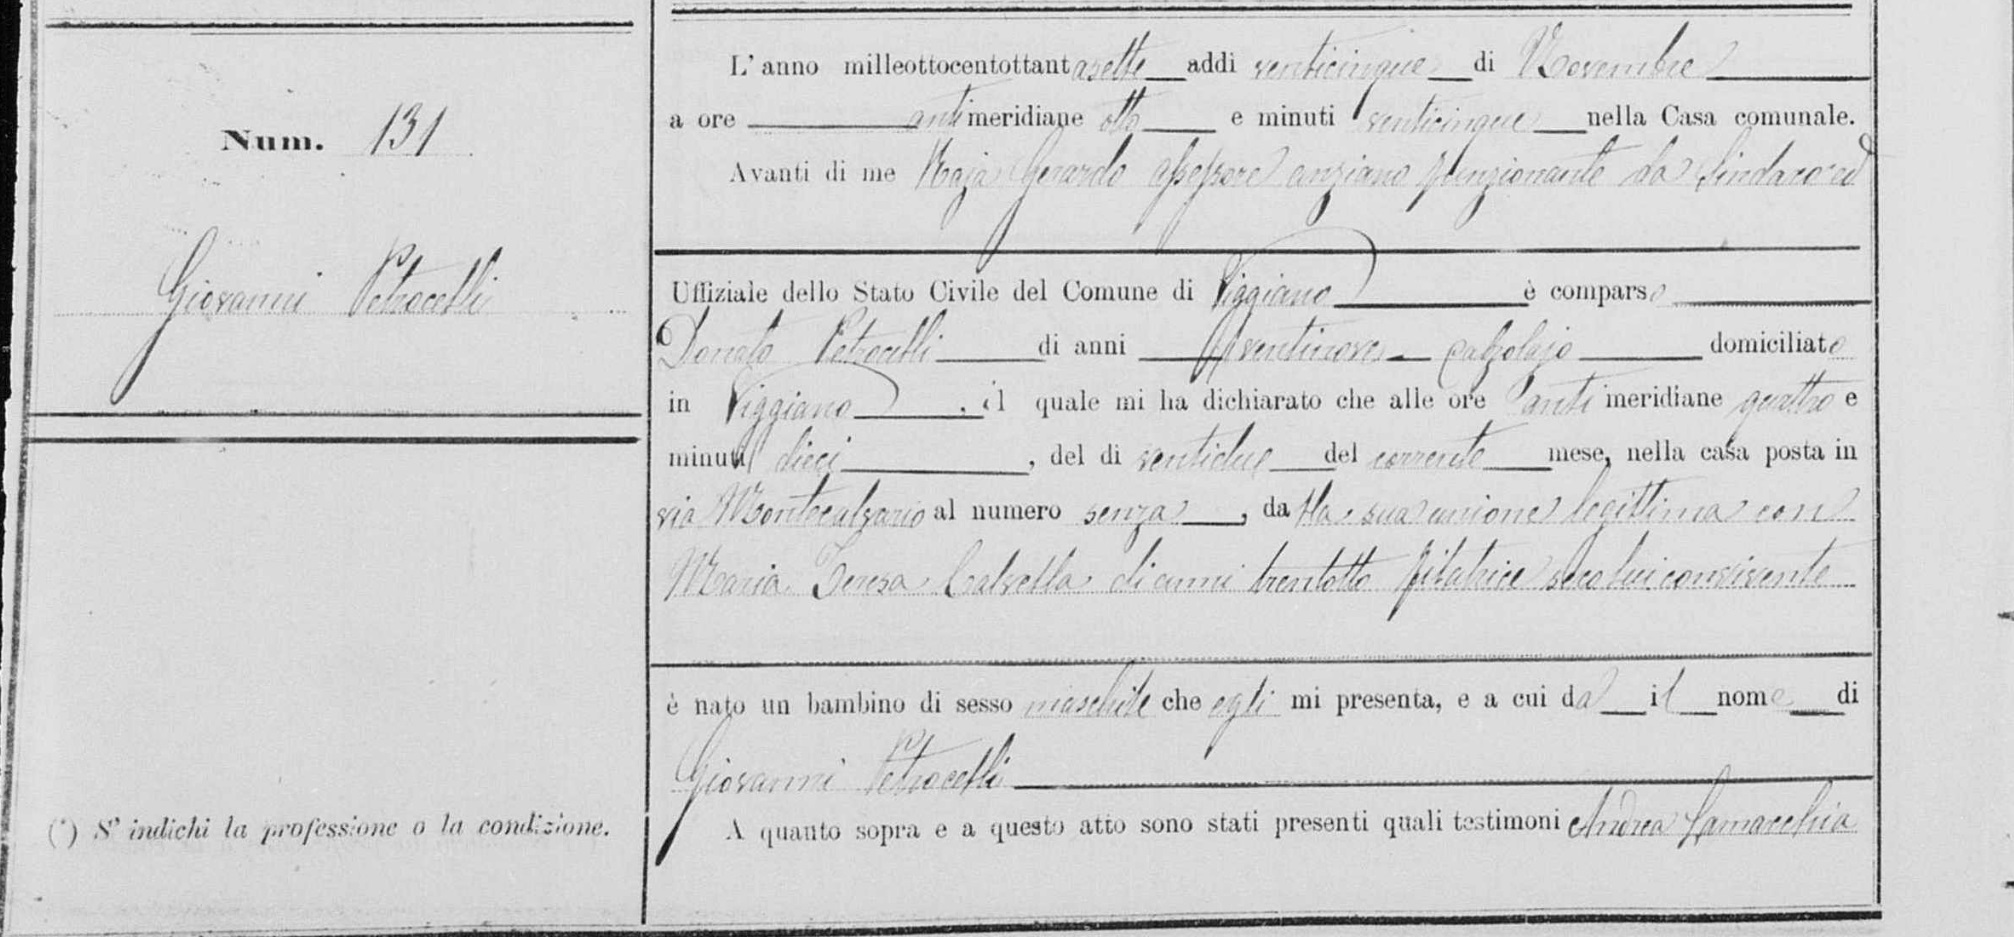 Num. 131
Giovanni Petrocelli
(*) S' indichi la professione o la condizione.
L' anno milleottocentottantasette addi venticinque di Novembre
a ore antimeridiane otto e minuti venticinque nella Casa comunale.
Avanti di me Gerardo assessore anziano funzionante da Sindaco ed
Uffiziale dello Stato Civile del Comune di Viggiano è comparso
Donato Petrocelli di anni ventinove calzolajo domiciliato
in Viggiano, il quale mi ha dichiarato che alle ore antimeridiane quattro e
minuti dieci, del di ventidue del corrente mese, nella casa posta in
via Montecalvario al numero senza, dalla sua unione legittima con
Maria Teresa Calvella di anni trentotto filatrice seco lui convivente
è nato un bambino di sesso maschile che egli mi presenta, e a cui da il nome di
Giovanni Petrocelli
A quanto sopra e a questo atto sono stati presenti quali testimoni Andrea Lamacchia